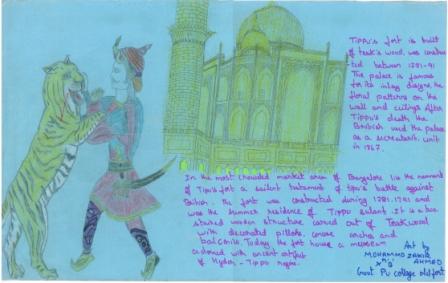 Tippu's fort is built
of teak's wood, was constru
cted between 1781-91
The palace is famous
for its inlay designs, the
floral patterns on the
wall and ceilings After
Tippu's death the
British used the palace
as a secretariat. until
in 1867.
In the most crowded market area of Bangalore lis the remnant
of Tipu's fort a silent testament of tipu's battle against
British. The fort was constructed during 1781, 1791 and
was the summer residence of Tippu sultan. It is a two
storied wooden structure carved out of Teak wood
with decorated pillars, arches and
balconies. Today, the fort house a museum
adorned with ancient artifact
of Hyder - Tippu regime.
Art by
MOHAMMD ZAKIR
AHMED
Govt PU college old fort